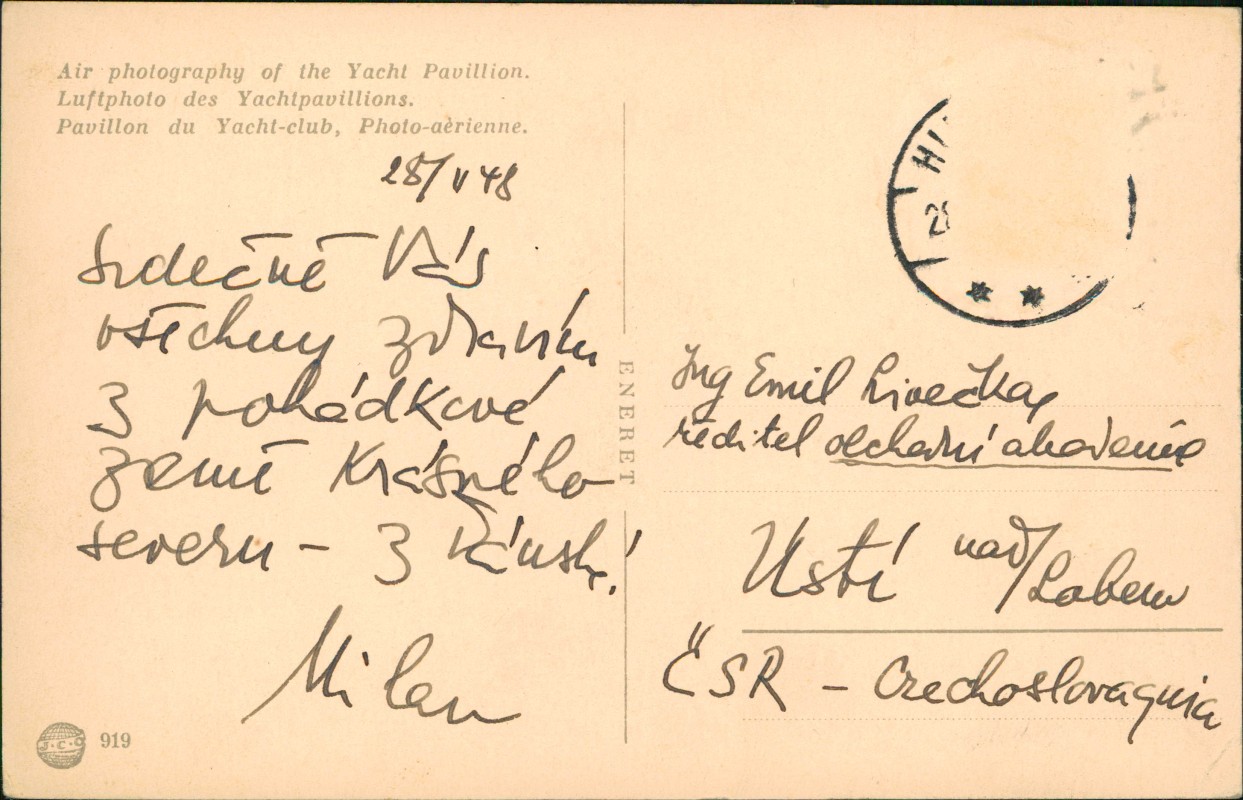 Air photography of the Yacht Pavillion.
Luftphoto des Yachtpavillions.
Pavillon du Yacht-club, Photo-aèrienne.
28/V 48
Srdečně Vás
všechny zdravím
z pohádkové
země krásného
severu – z Dánska!
Milan
J·C·O 919
ENERET
Ing Emil
ředitel obchodní akademie
Ústí nad/Labem
ČSR – Czechoslovaquia